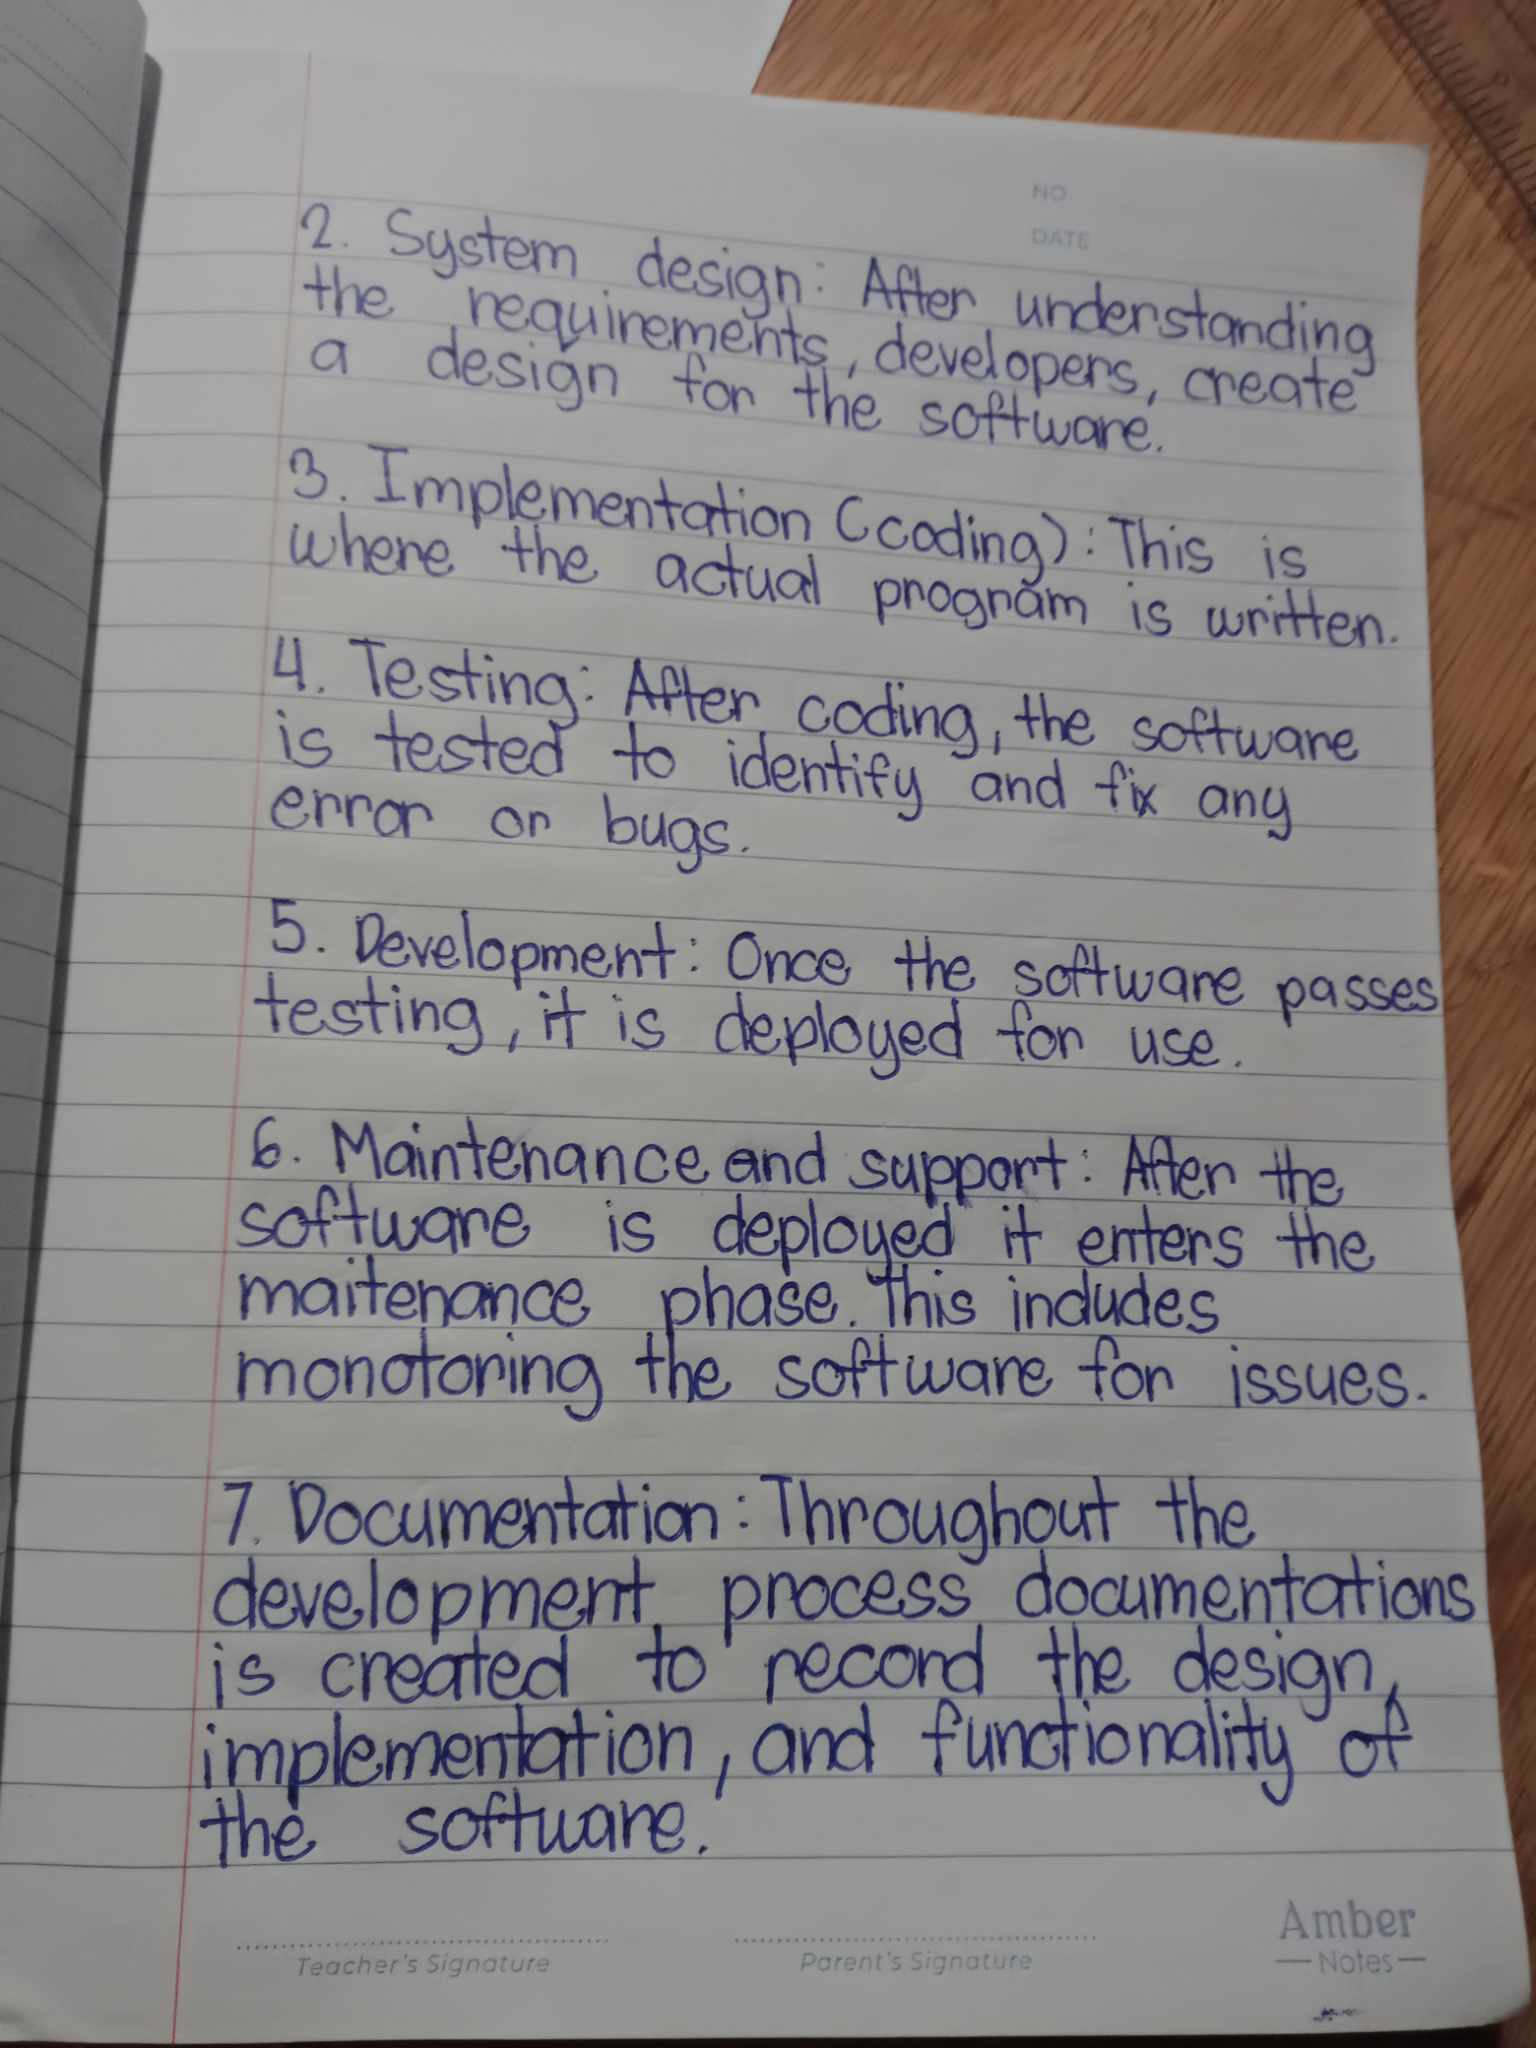 NO
DATE
2. System design: After understanding
the requirements, developers, create
a design for the software.
3. Implementation (coding): This is
where the actual program is written.
4. Testing: After coding, the software
is tested to identify and fix any
error or bugs.
5. Development: Once the software passes
testing, it is deployed for use.
6. Maintenance and support: After the
software is deployed it enters the
maitenance phase. This includes
monotoring the software for issues.
7. Documentation: Throughout the
development process documentations
is created to record the design,
implementation, and functionality of
the software.
Teacher's Signature
Parent's Signature
Amber
Notes